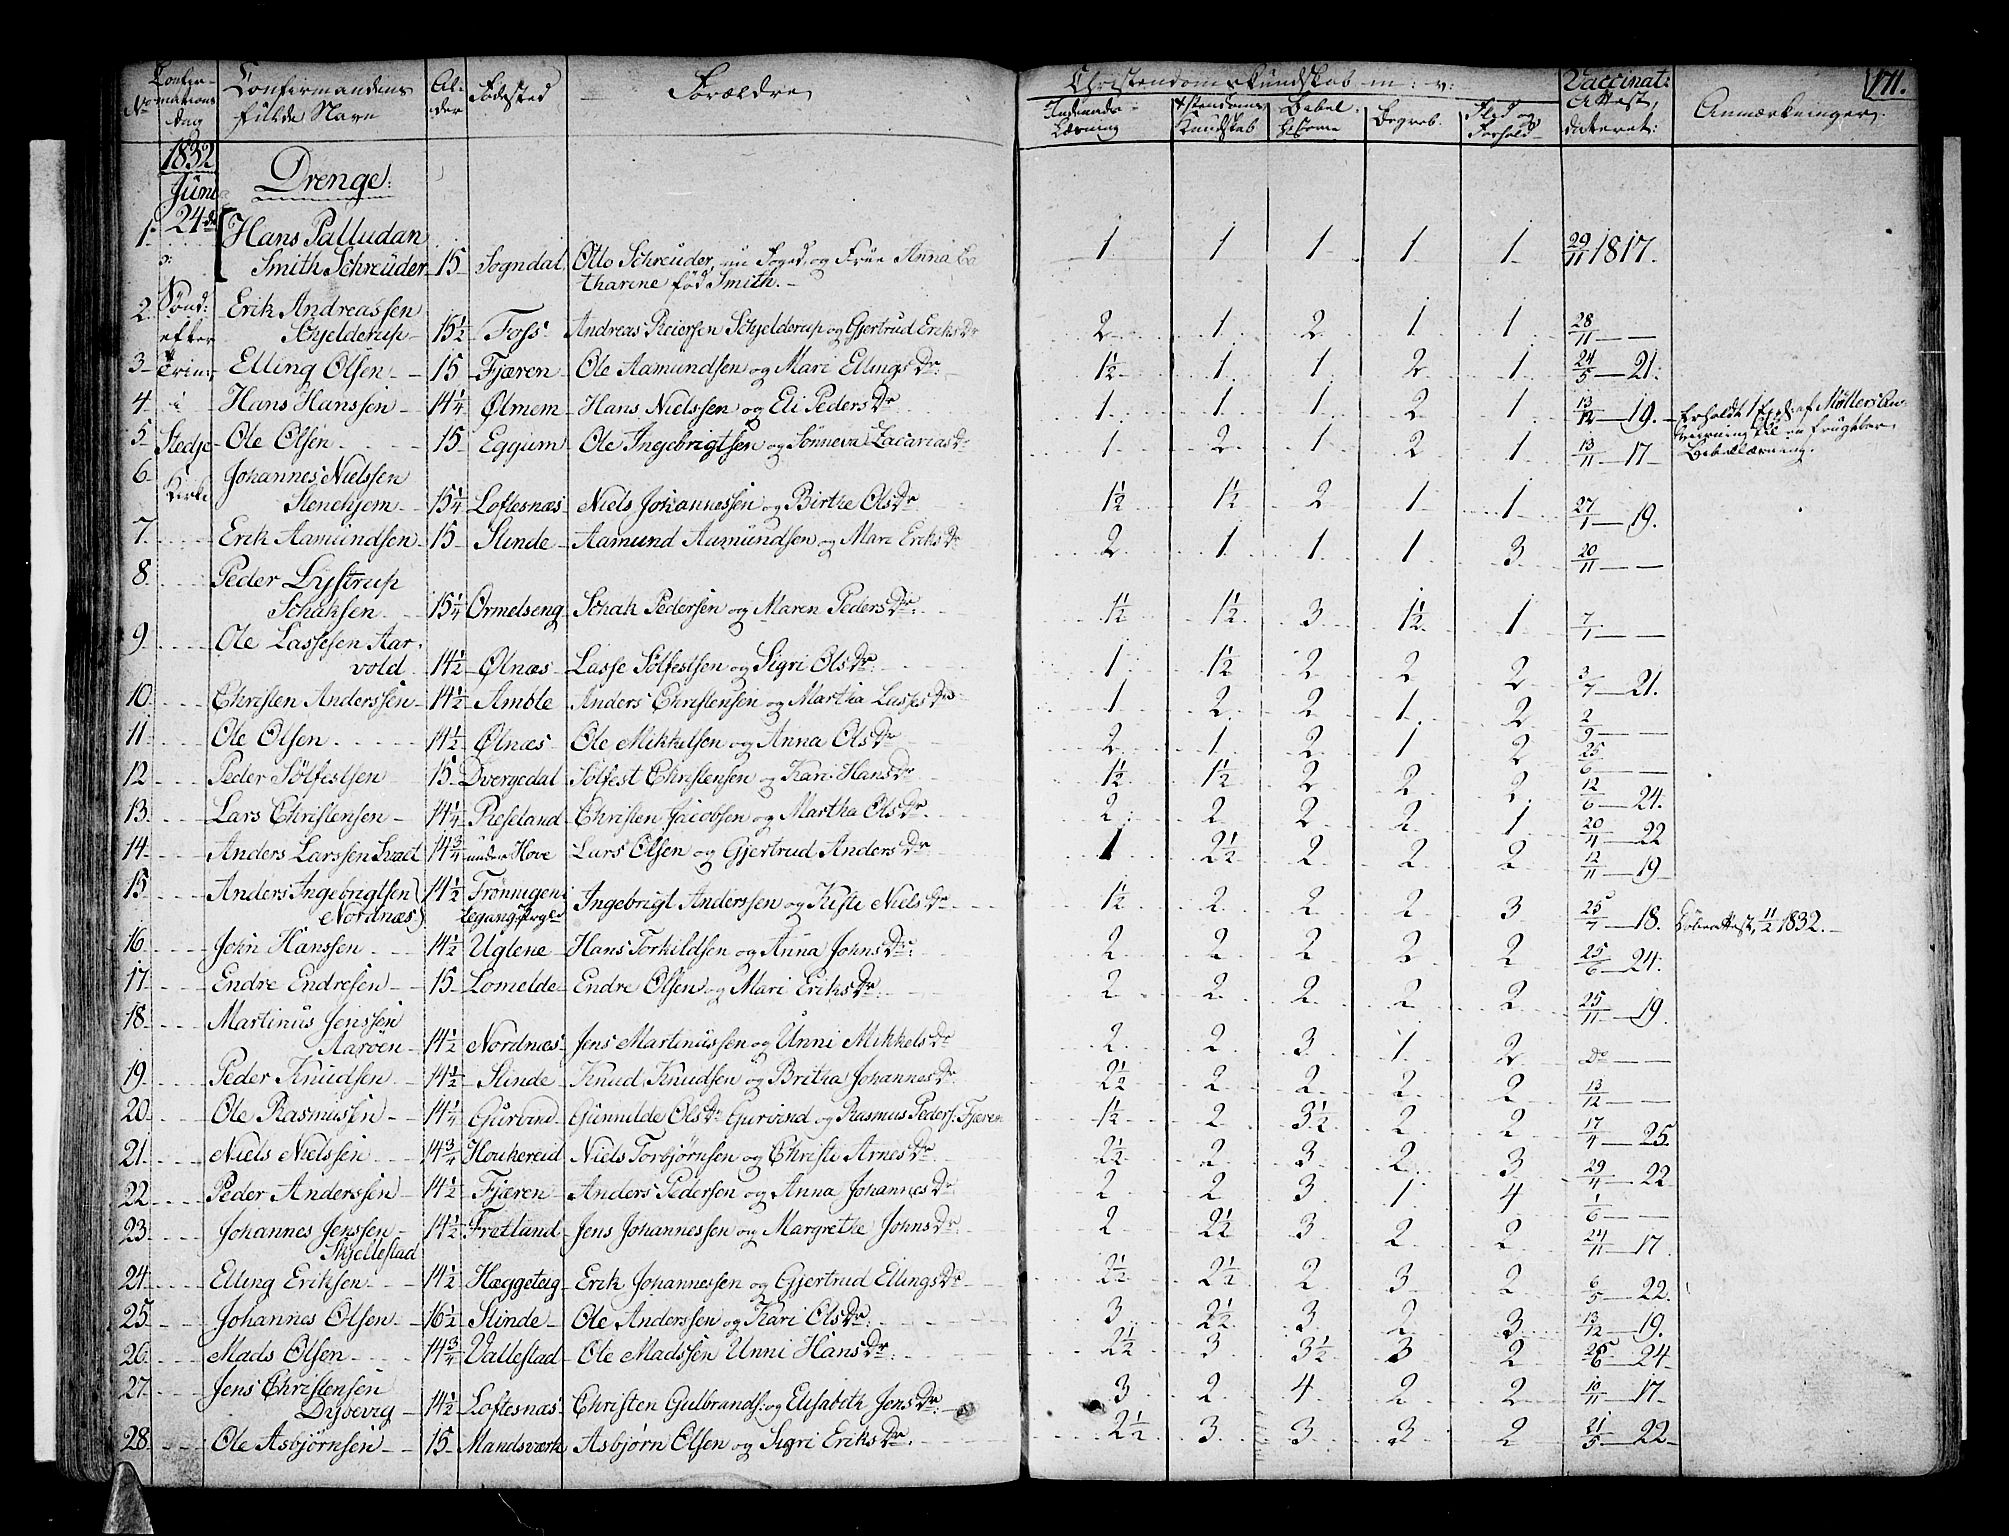 171.
No Confirmations dag Confirmandens fulde Navn Alder Fødested Forældre Christendomskundskab m: v: Vaccinat: Attest, dateret: Anmærkninger
Indenads-Læsning Xstendoms Kundskab Bibel-historie Begreb. Flid og Forhold
1832 Juni 24de
Drenge:
1. Hans Palludan
Smith Schreuder 15 Sogndal Otto Schreuder, nu Foged, og Frue Anna Ca 1 1 1 1 1 29/11 1817.
tharine fød Smith.
2. Sønd: Erik Andreassen
efter Schjelderup 15½ Foss Andreas Reiersen Schjelderup og Gjertrud Eriks Dr 2 1 2 1 1 28/11 — —
3 Trin: Elling Olsen 15 Fjæren Ole Aamundsen og Mari Ellings Dr: 1½ 1 1 2 1 24/5 — 21.
4. i Hans Hanssen 14¼ Ølmem Hans Nielssen og Eli Peders Dr 1 1 1 2 1 13/12 — 19. Erholdt 1 Expl. af Møllers An-
5. Stedje Ole Olsen 15 Eggum Ole Ingebrigtsen og Sønneva Zacarias Dr 1 2 1 2 1 13/11 — 17 viisning til en frugtbar
Bibellæsning.
6. Kirke Johannes Nielssen
Stenehjem 15¼ Loftesnæs Niels Johannessen og Birthe Ols Dr 1½ 1½ 2 1 1 27/1 — 19.
7. Erik Aamundsen 15 Slinde Aamund Aamundsen og Mari Eriks Dr 2 1 1 1 3 20/11 — —
8. Peder Lystrup
Schaksen 15¼ Ormelseng Schak Pedersen og Maren Peders Dr. 1½ 1½ 3 1½ 1 7/1 — —
9. Ole Lassesen Aar-
vold 14½ Ølnæs Lasse Sølfestsen og Sigri Ols Dr. 1 1½ 2 2 2 3/7 — 21.
10. Christen Anderssen 14½ Amble Anders Christensen og Martha Lasses Dr 1 2 2 1 2 2/9 — —
11. Ole Olsen 14½ Ølnæs Ole Mikkelsen og Anna Ols Dr 2 1 2 1 2 25/6 — —
12 Peder Sølfestsen 15 Dvergedal Sølfest Christensen og Kari Hans Dr 1½ 1½ 2 2 2 12/6 — 24.
13. Lars Christensen 14¼ Reseland Christen Jacobsen og Martha Ols Dr. 2 2 2 2 1 20/4 — 22
14. Anders Larssen Svæet 14¾ under Hove Lars Olsen og Gjertrud Anders Dr 1 2½ 2 2 2 12/11 — 19
15 Anders Ingebrigtsen 14½ Frønnigen i Ingebrigt Anderssen og Kisti Niels Dr 1½ 2 2 2 3 25/7 — 18. Døbeattest, 11/2 1832.
Nordnæs
16 John Hanssen 14½ Uglene Hans Torkildsen og Anna Johns Dr: 2 2 2 2 2 25/6 — 24.
17. Endre Endresen 15 Lomelde Endre Olsen og Mari Eriks Dr. 2 2 2 2 2 25/11 — 19.
18. Martinus Jenssen
Aarøen 14½ Nordnæs Jens Martinussen og Unni Mikkels Dr 2 2 3 1 2 Do — —
19. Peder Knudsen 14½ Slinde Knud Knudsen og Britha Johannes Dr 2½ 2 2 2 2 13/12 — —
20. Ole Rasmussen 14¼ Gurvind Gunnilde Ols Dr Gurvind og Rasmus Peders: Fjæren 1½ 2 3½ 2 2 17/4 — 25.
21. Niels Nielssen 14¾ Houkereid Niels Torbjørnsen og Christi Arnes Dr 2½ 2 3 2 3 29/4 — 22
22. Peder Anderssen 14½ Fjæren Anders Pedersen og Anna Johannes Dr 2 2 3 1 4 1/6 — —
23. Johannes Jenssen 14½ Fretland Jens Johannessen og Margrethe Johns Dr 2 2½ 3 2 2 24/11 — 17.
Skjellestad
24. Elling Eriksen 14½ Hæggeteig Erik Johannessen og Gjertrud Ellings Dr 2½ 2½ 2 3 2 6/5 — 22.
25. Johannes Olsen 16½ Slinde Ole Anderssen og Kari Ols Dr. 3 2½ 3 2 3 13/12 — 19.
26. Mads Olsen 14¾ Vallestad Ole Madssen Unni Hans Dr. 2½ 3 3½ 3 2 25/6 — 24
27. Jens Christensen
Dybevig 14½ Loftesnæs Christen Gulbrands: og Elisabeth Jens Dr. 3 2 4 2 2 10/11 — 17.
28. Ole Asbjørnsen 15 Mandsværk Asbjørn Olsen og Sigri Eriks Dr. 2½ 3 3 3 2 21/5 — 22